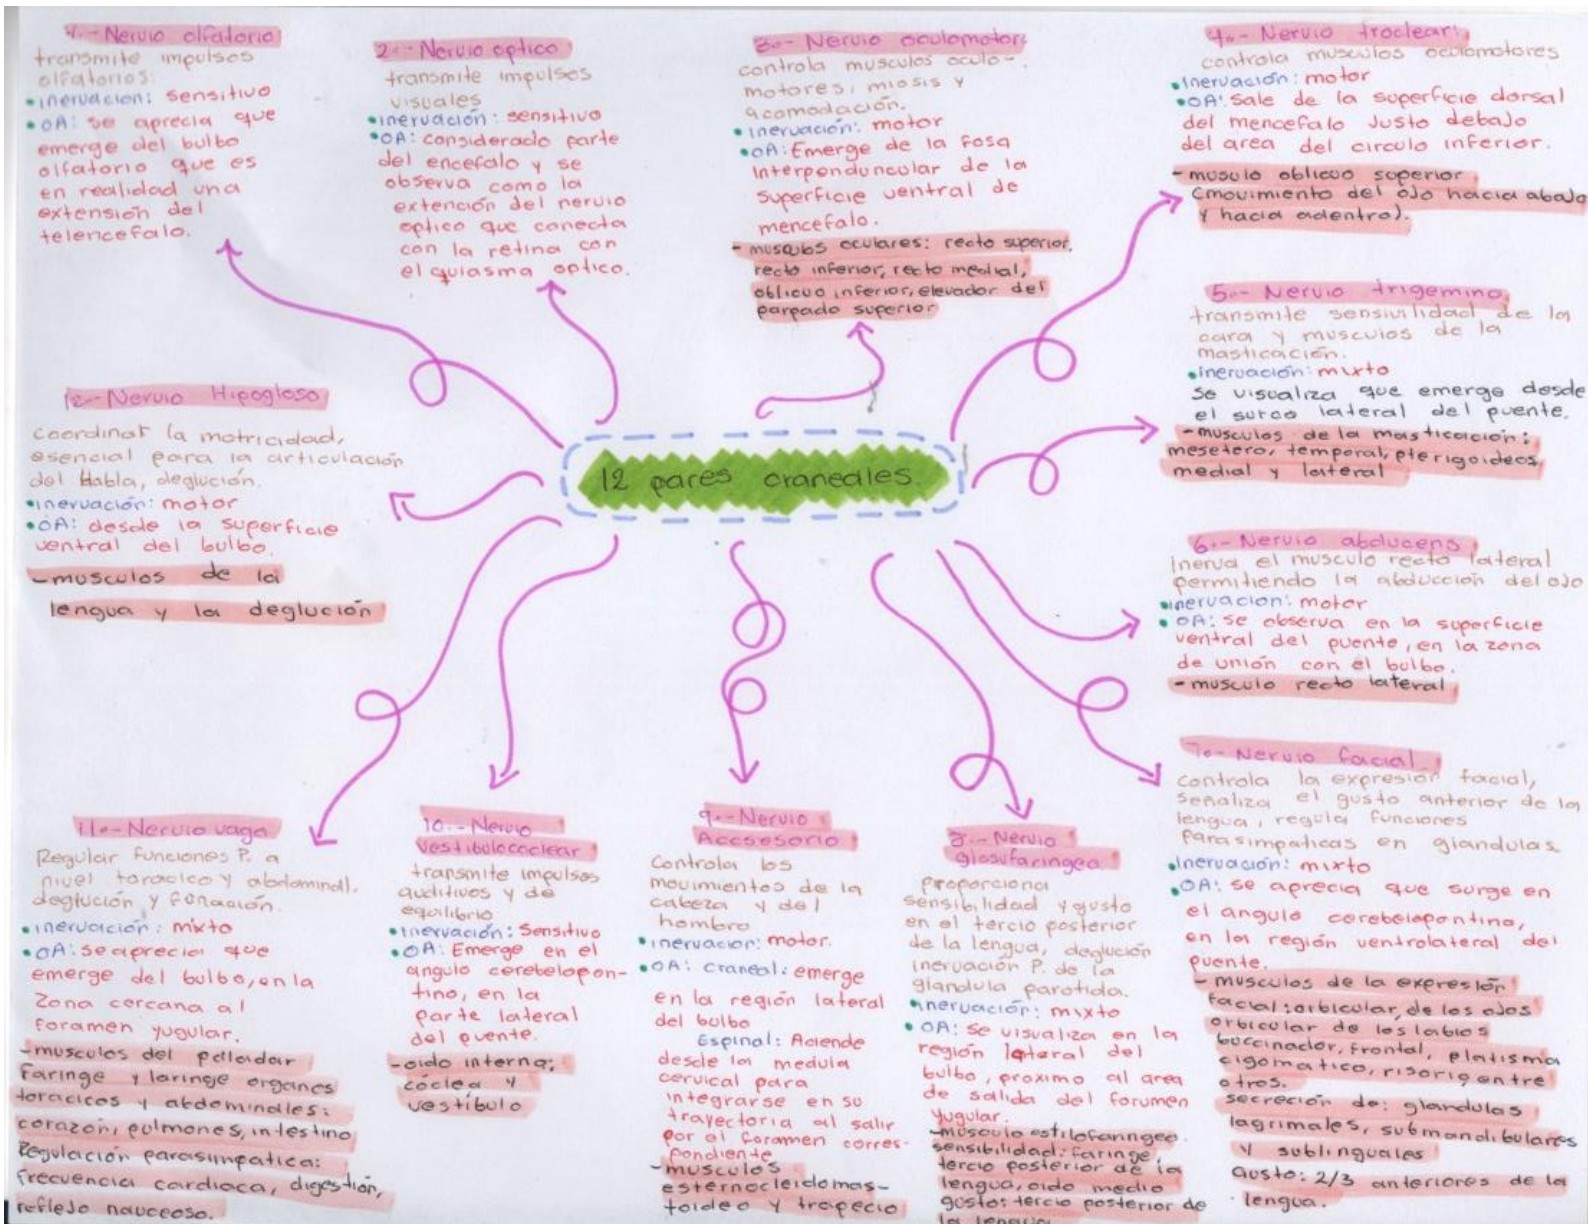 1.- Nervio olfatorio
transmite impulsos
olfatorios.
•inervacion: sensitivo
•OA: se aprecia que
emerge del bulbo
olfatorio que es
en realidad una
extensión del
telencefalo.
2.- Nervio optico
transmite impulsos
visuales
•inervación: sensitivo
•OA: considerado parte
del encefalo y se
observa como la
extención del nervio
optico que conecta
con la retina con
el quiasma optico.
3.- Nervio oculomotor:
controla musculos oculo-
motores, miosis y
acomodación.
•inervación: motor
•OA: Emerge de la fosa
Interpenduncular de la
superficie ventral de
mencefalo.
- musculos oculares: recto superior,
recto inferior, recto medial,
oblicuo inferior, elevador del
parpado superior
4.- Nervio troclear:
controla musculos oculomotores
•inervación: motor
•OA: Sale de la superficie dorsal
del mencefalo Justo debajo
del area del circulo inferior.
- musulo oblicuo superior
(movimiento del ojo hacia abajo
y hacia adentro).
5.- Nervio trigemino
transmite sensivilidad de la
cara y musculos de la
masticación.
•inervación: mixto
se visualiza que emerge desde
el surco lateral del puente.
-musculos de la masticación:
mesetero, temporal, pterigoideos,
medial y lateral
12.- Nervio Hipogloso
Coordinar la motricidad,
esencial para la articulación
del Habla, deglución.
•inervación: motor
•OA: desde la superficie
ventral del bulbo.
-musculos de la
lengua y la deglución
12 pares craneales.
6.- Nervio abducens
Inerva el musculo recto lateral
permitiendo la abducción del ojo
•inervacion: motor
•OA: se observa en la superficie
ventral del puente, en la zona
de unión con el bulbo.
- musculo recto lateral
7.- Nervio facial
controla la expresión facial,
señaliza el gusto anterior de la
lengua, regula funciones
Parasimpaticas en glandulas
•Inervación: mixto
•OA: se aprecia que surge en
el angulo cerebelopontino,
en la región ventrolateral del
puente.
- musculos de la expresión
facial: orbicular, de los ojos
orbicular de los labios
buccinador, frontal, platisma
cigomatico, risorio, entre
otros.
secreción de: glandulas
lagrimales, submandibulares
y sublinguales
Gusto: 2/3 anteriores de la
lengua.
11.- Nervio vago
Regular funciones P. a
nivel toracico y abdominal.
deglución y fonación.
•inervación: mixto
•OA: se aprecia que
emerge del bulbo, en la
Zona cercana al
foramen yugular.
-musculos del paladar
faringe y laringe organos
toracicos y abdominales:
corazon, pulmones, intestino
Regulación parasimpatica:
frecuencia cardiaca, digestión,
reflejo nauceoso.
10.- Nervio
vestibulococlear
transmite impulsos
auditivos y de
equilibrio
•Inervación: Sensitivo
•OA: Emerge en el
angulo cerebelopon-
tino, en la
parte lateral
del puente.
-oido interno:
cóclea y
vestíbulo
9.- Nervio
Accsesorio
Controla los
movimientos de la
cabeza y del
hombro
•inervacion: motor.
•OA: craneal: emerge
en la región lateral
del bulbo
Espinal: Aciende
desde la medula
cervical para
integrarse en su
trayectoria al salir
por el foramen corres-
pondiente
-musculos
esternocleidomas-
toideo y trapecio
8.- Nervio
glosofaringeo
proporciona
sensibilidad y gusto
en el tercio posterior
de la lengua, deglución
inervación P. de la
glandula parotida.
•inervación: mixto
•OA: se visualiza en la
región lateral del
bulbo, proximo al area
de salida del forumen
yugular.
-musculo estilofaringeo
sensibilidad: faringe,
tercio posterior de la
lengua, oido medio
gusto: tercio posterior de
la lengua